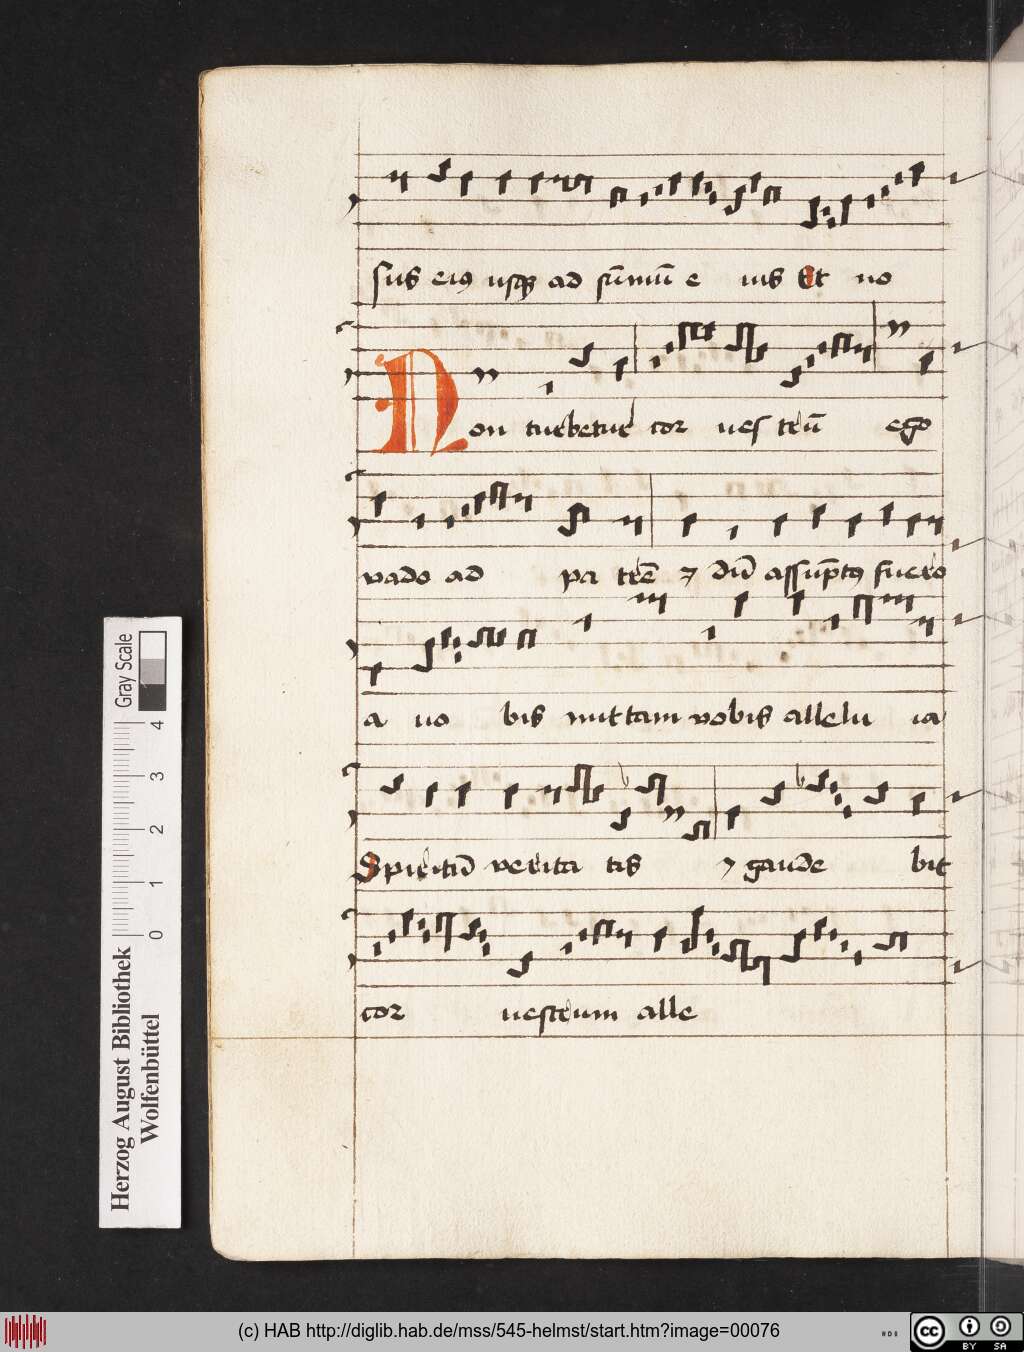 sus eiꝰ usqꝫ ad sūmū e ius Et no
Non turbetur cor ves trū ego
vado ad pa trē ⁊ dū assūptꝰ fuero
a vo bis mittam vobis allelu ia
Spiritū verita tis ⁊ gaude bit
cor vestrum alle
Gray Scale
4
3
2
1
0
Herzog August Bibliothek
Wolfenbüttel
(c) HAB http://diglib.hab.de/mss/545-helmst/start.htm?image=00076
cc
BY SA